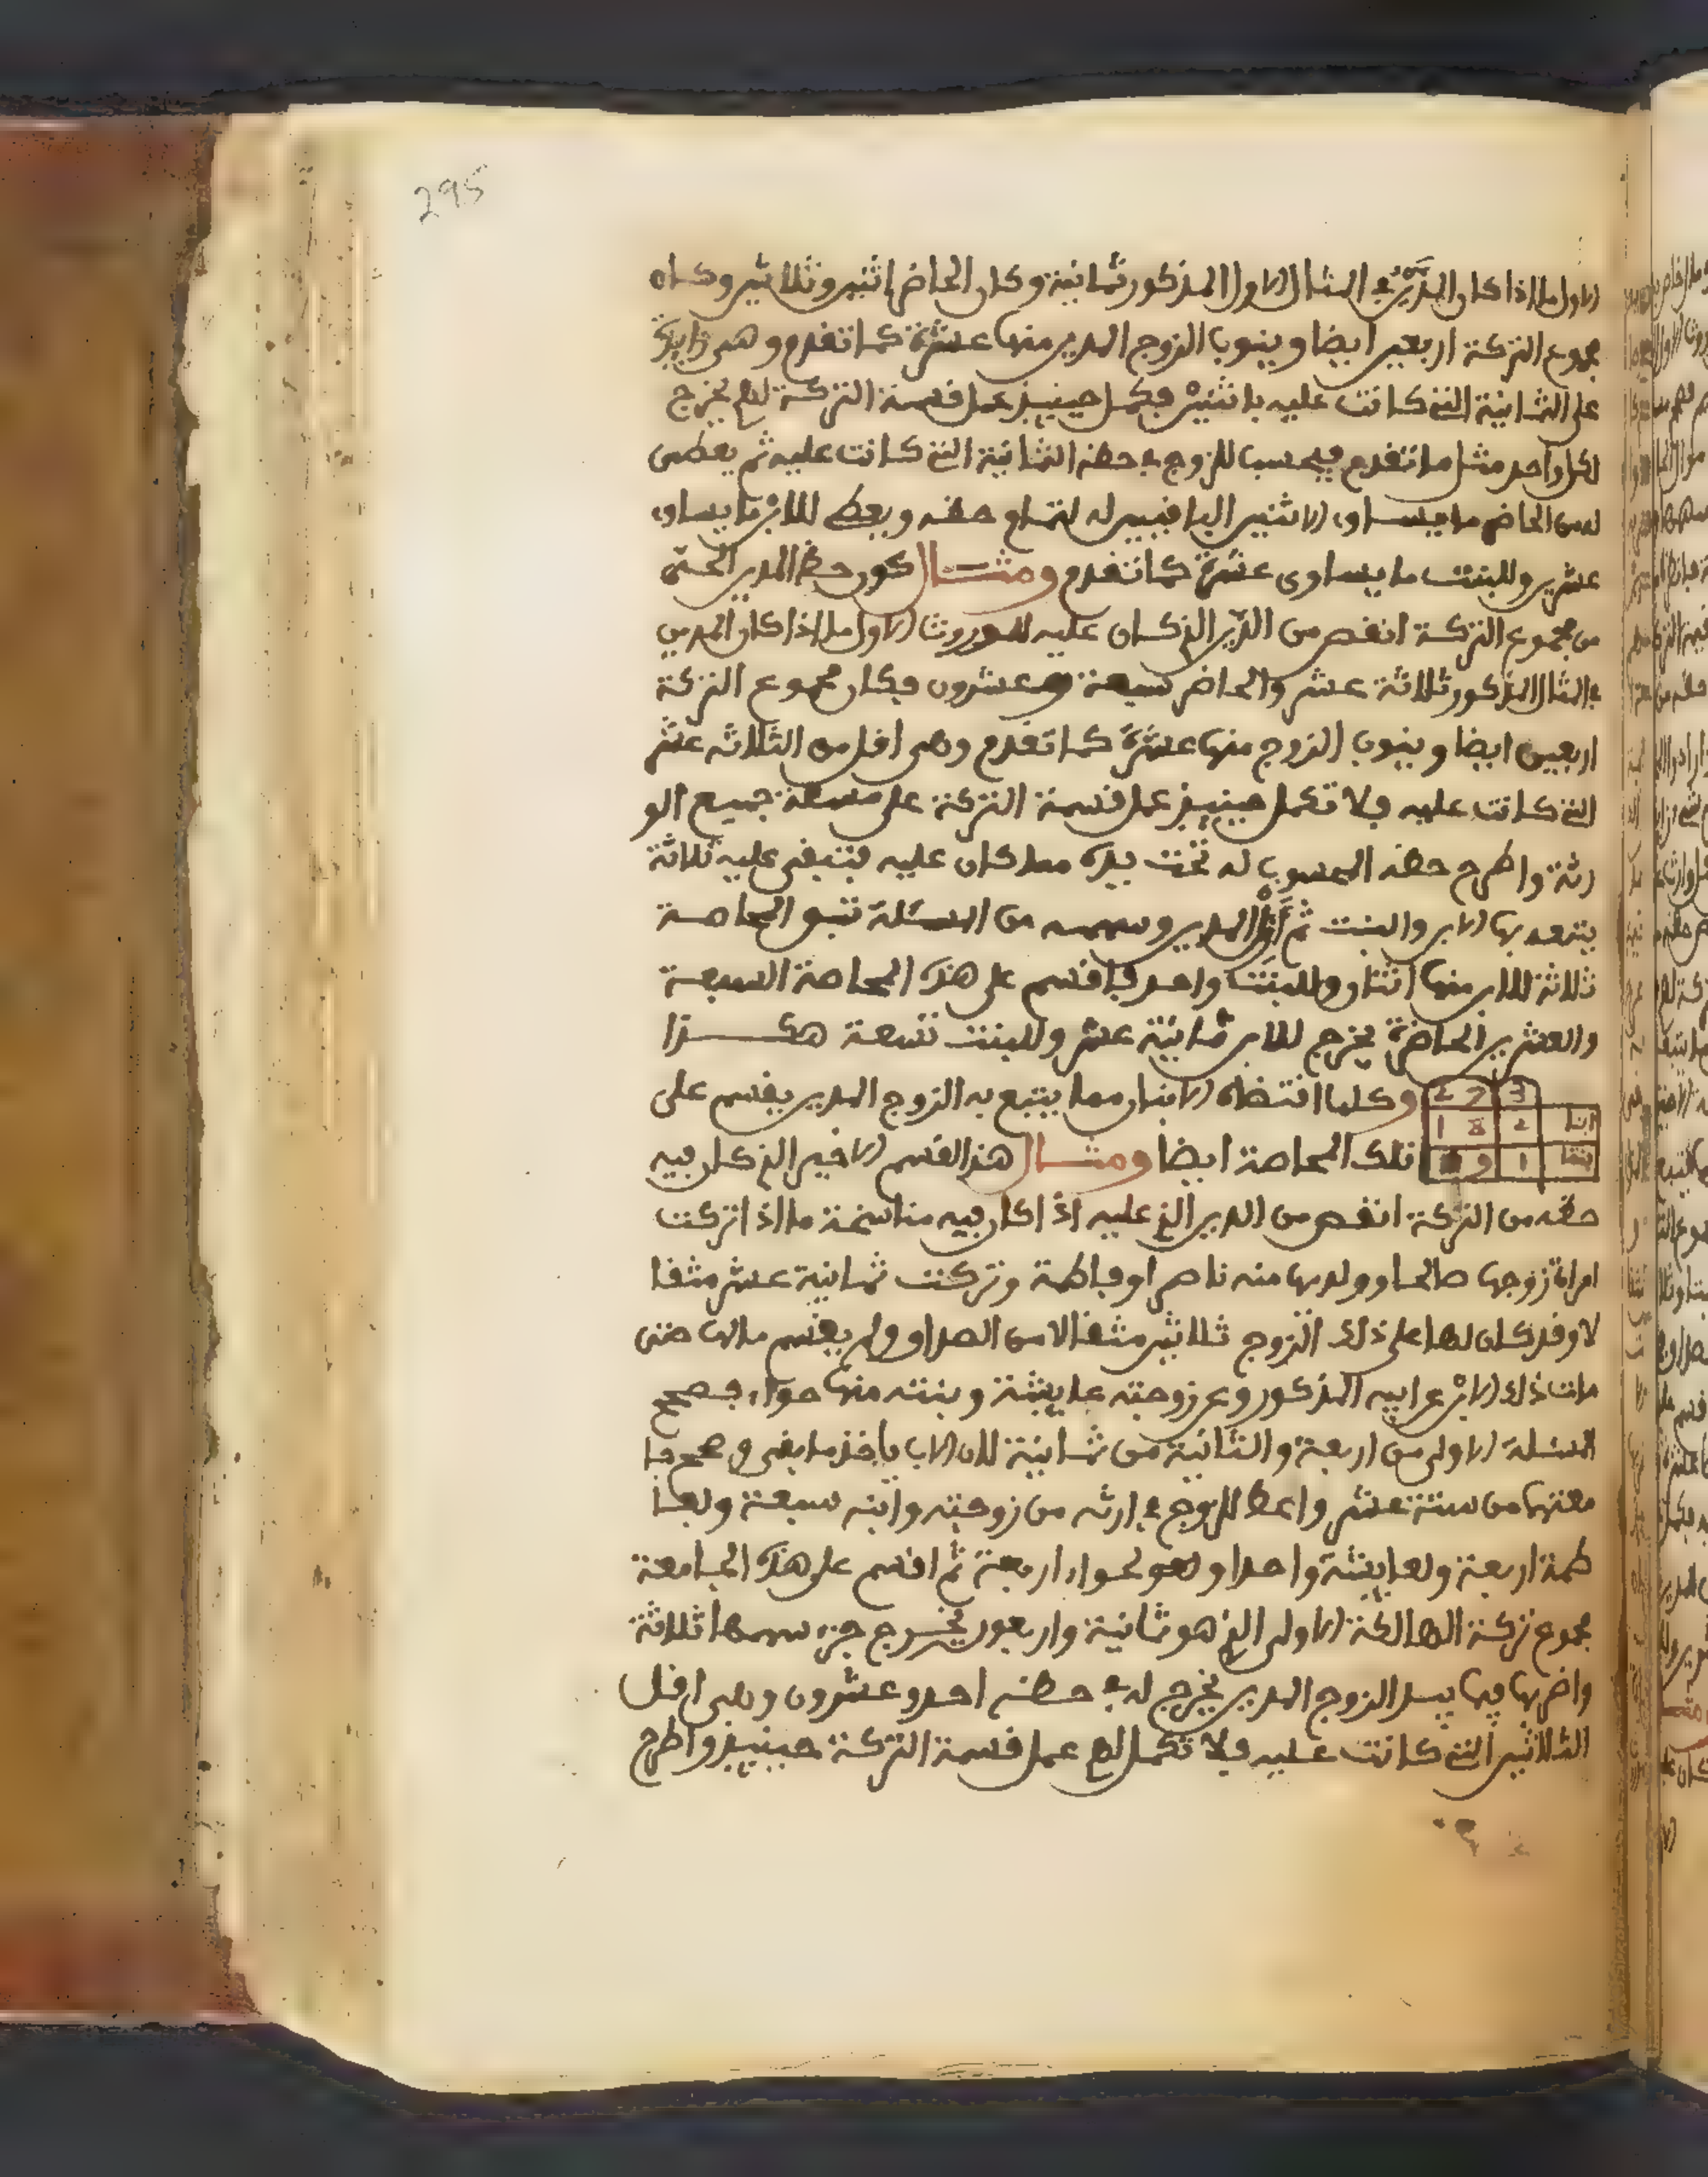 295
الاول ما اذا كان الدين في المثال الاول المذكور ثمانية وكان الحاضر اثنين وثلاثين وكان
مجموع التركة اربعين ايضا وينوب الزوج المدين منها عشرة كما تقدم وهي زايدة
على الثمانية التي كانت عليه باثنين فكمل حينيذ عمل قسمة التركة لهم يخرج
لكل واحد مثل ما تقدم فيحسب للزوج في حظه الثمانية التي كانت عليه ثم يعطى
له من الحاضر ما يساوي الاثنين الباقيين له لتمام حقه ويعطى للابن ما يساوي
عشرين وللبنت ما يساوي عشرة كما تقدم ومثال كون حظ المدين
من مجموع التركة انقص من الدين الذي كان عليه للموروث الاول ما اذا كان الدين
في المثال المذكور ثلاثة عشر والحاضر سبعة وعشرون فكان مجموع التركة
اربعين ايضا وينوب الزوج منها عشرة كما تقدم وهي اقل من الثلاثة عشر
التي كانت عليه فلا تكمل حينيذ عمل قسمة التركة على مسئلة جميع الو
رثة واطرح حظه المحسوب له تحت يده مما كان عليه فتبقى عليه ثلاثة
يتبعه بها الابن والبنت ثم المدين وسهمه من المسئلة تبق المحاصة
ثلاثة للابن منها اثنان وللبنت واحد فاقسم على هذه المحاصة السبعة
والعشرين الحاضرة يخرج للابن ثمانية عشر وللبنت تسعة هكذا
3 27 وكلما اقتضاه الابنان مما يتبع به الزوج المدين يقسم على
ابنا 2 18
بنتا 1 9 تلك المحاصة ايضا ومثال هذا القسم الاخير الذي كان فيه
حقه من التركة انقص من الدين الذي عليه اذا كان فيه مناسخة ما اذا تركت
امراة زوجها صالحا وولديها منه ناصرا وفاطمة وتركت ثمانية عشر مثقا
لا وقد كان لها على ذلك الزوج ثلاثين مثقالا من الصداق ولم يقسم مالها حتى
مات ذلك الابن عن ابيه المذكور وعن زوجته عايشة وبنته منها حواء فصحح
المسئلة الاولى من اربعة والثانية من ثمانية لان الاب ياخذ ما بقي وصحح جا
معتها من ستة عشر واعط للزوج في ارثه من زوجته وابنه سبعة ولفا
طمة اربعة ولعايشة واحدا ولحواء اربعة ثم اقسم على هذه الجامعة
مجموع تركة الهالكة الاولى الذي هو ثمانية واربعون يخرج جزء سهمها ثلاثة
واضربها فيما بيد الزوج المدين يخرج له في حظه احد وعشرون وهي اقل
الثلاثين التي كانت عليه فلا تكمل لهم عمل قسمة التركة حينيذ واطرح